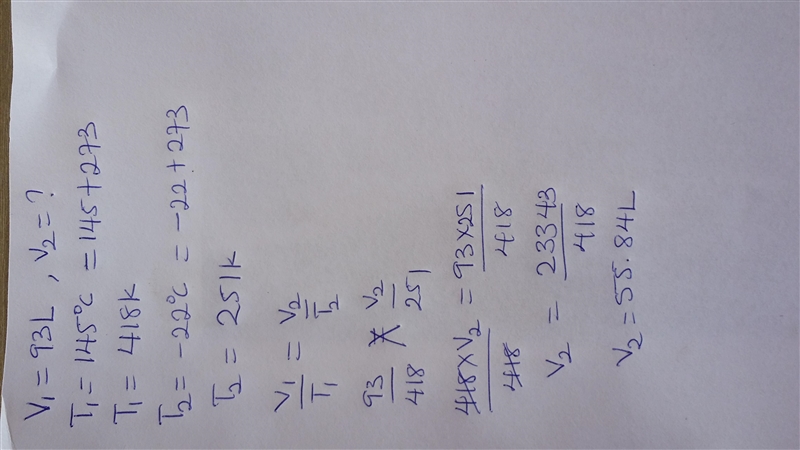 V₁ = 93L , V₂ = ?
T₁ = 145°C = 145+273
T₁ = 418K
T₂ = -22°C = -22+273
T₂ = 251K
V₁/T₁ = V₂/T₂
93/418 × V₂/251
418×V₂/418 = 93×251/418
V₂ = 23343/418
V₂ = 55.84L